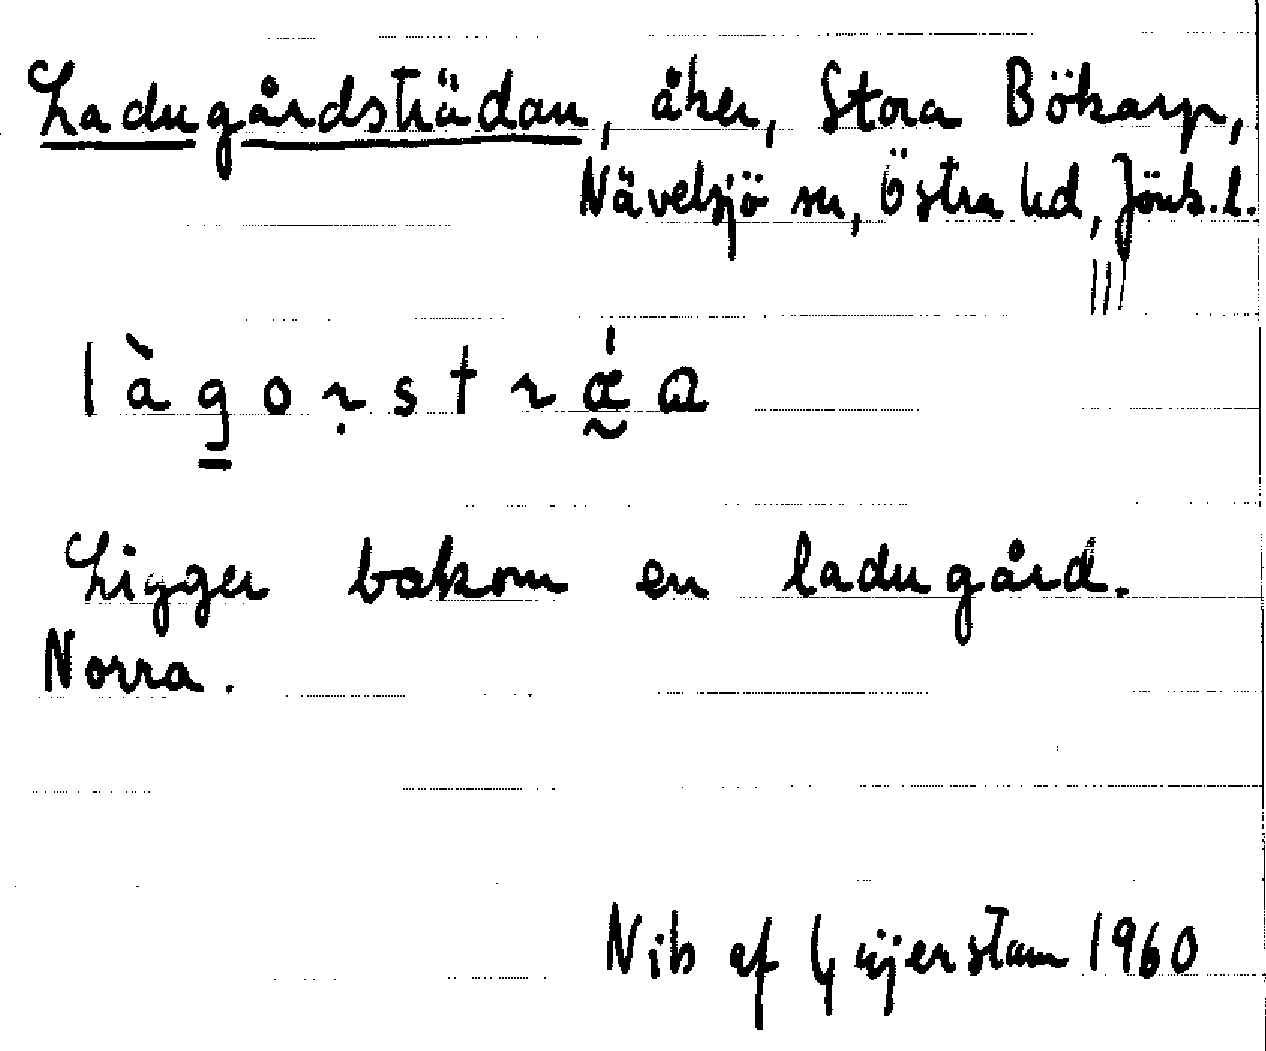 Ladugårdsträdan, åker, Stora Bökarp,
Nävelsjö sn, Östra hd, Jönk.l.
làgoṛstrǽ̰ɑ
Ligger bakom en ladugård.
Norra.
Nils af Geijerstam 1960